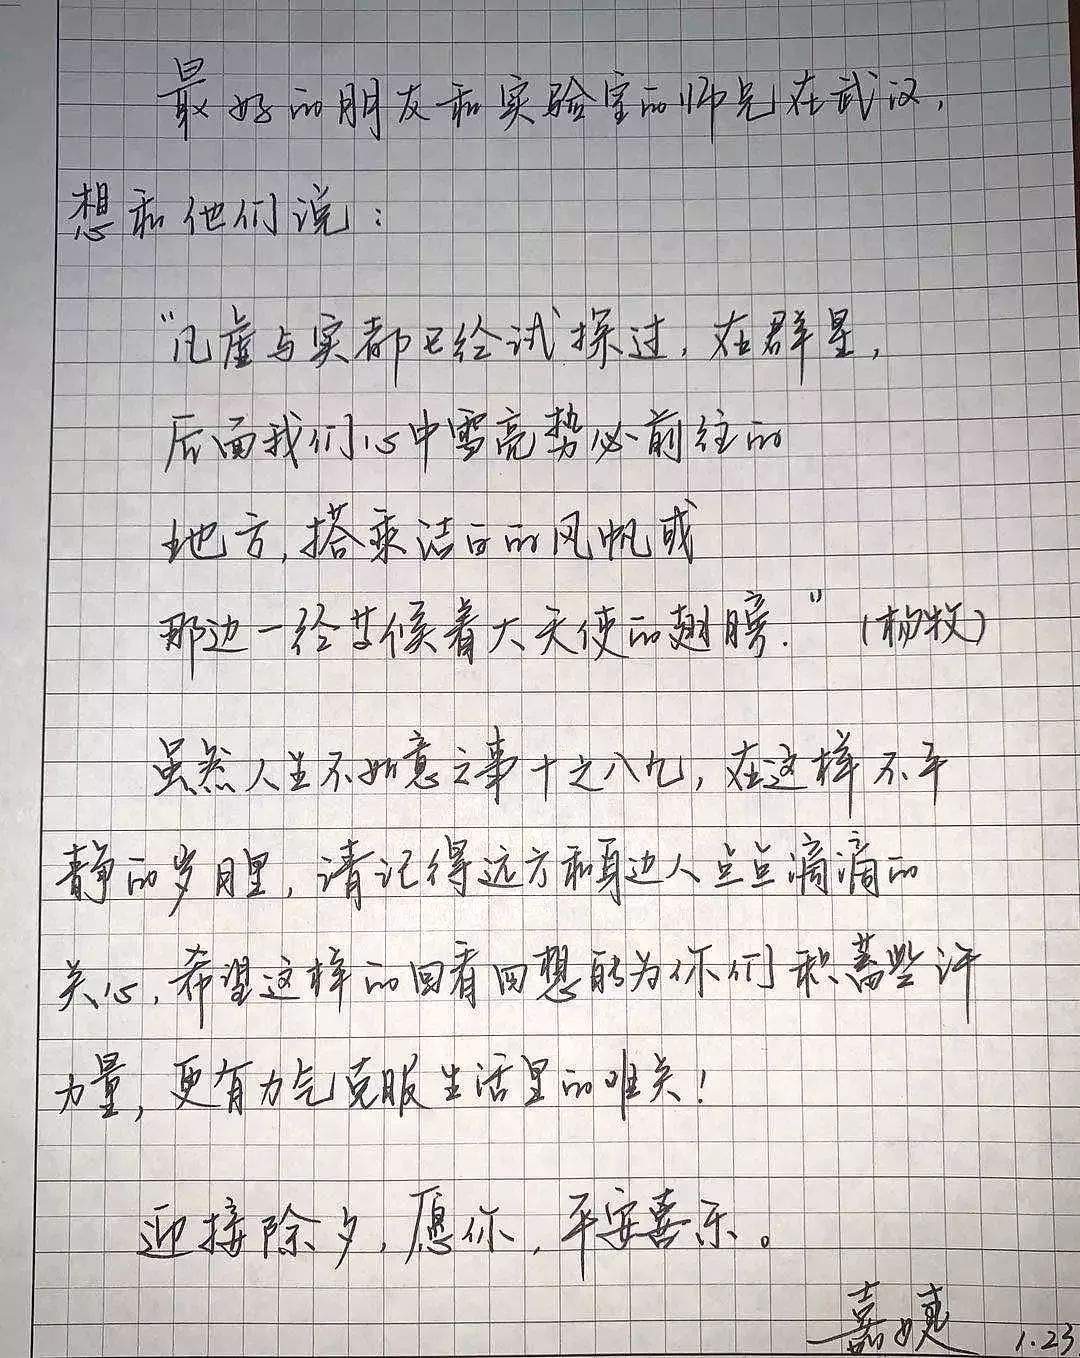 最好的朋友和实验室的师兄在武汉,
想和他们说:
“凡虚与实都已经试探过,在群星,
后面我们心中雪亮势必前往的
地方,搭乘洁白的风帆或
那边一经等候着大天使的翅膀.”(杨牧)
虽然人生不如意之事十之八九,在这样不平
静的岁月里,请记得远方和身边人点点滴滴的
关心,希望这样的回看回想能为你们积蓄些许
力量,更有力气克服生活里的难关!
迎接除夕,愿你,平安喜乐。
嘉婕 1.23